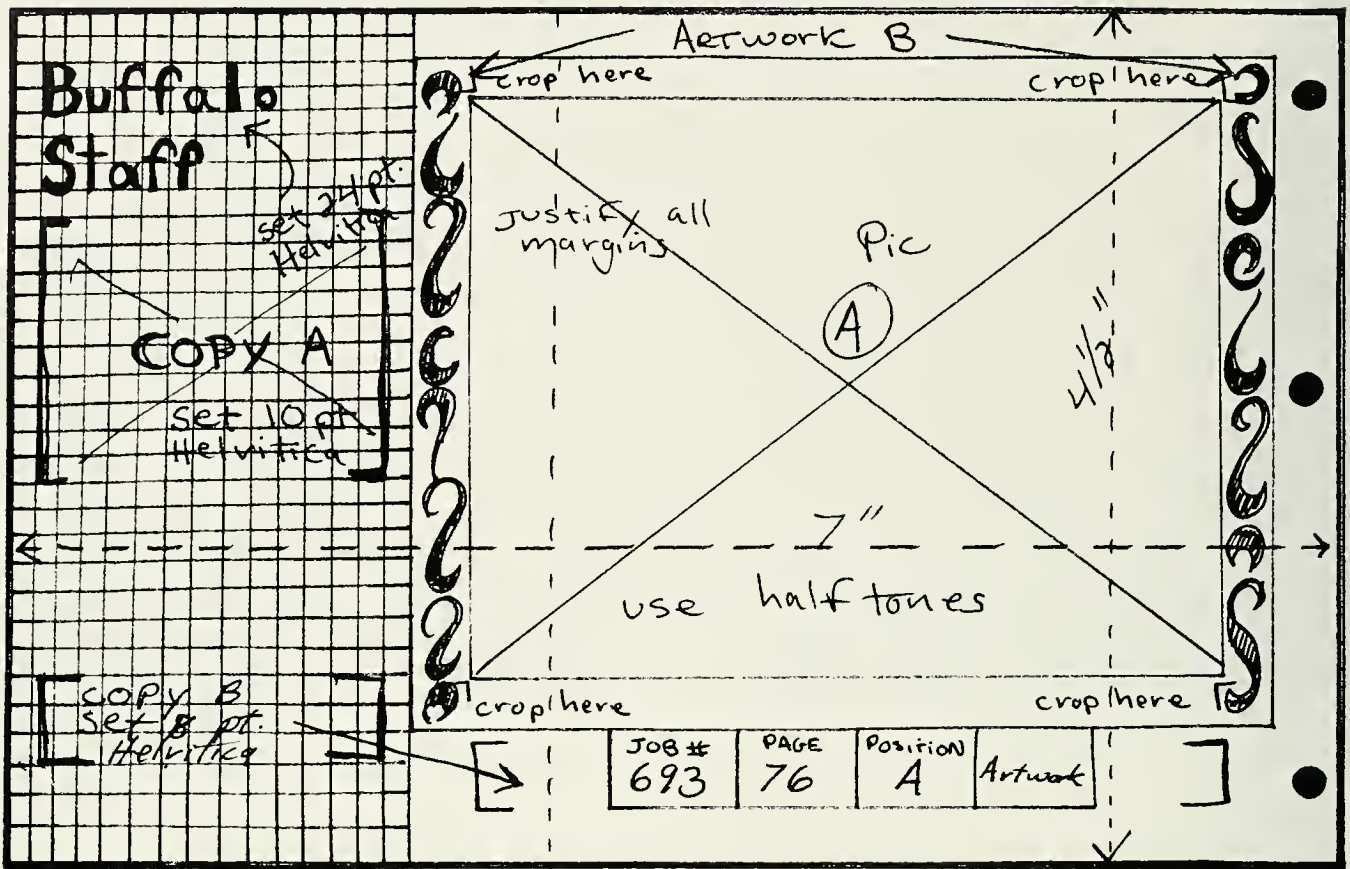 Buffalo
Staff
set 24 pt.
Helvitica
COPY A
set 10 pt
Helvitica
COPY B
set 8 pt.
Helvitica
Artwork B
crop here
crop here
Justify all
margins
Pic
A
4 1/2"
7"
use halftones
crop here
crop here
JOB #
693
PAGE
76
POSITION
A
Artwork